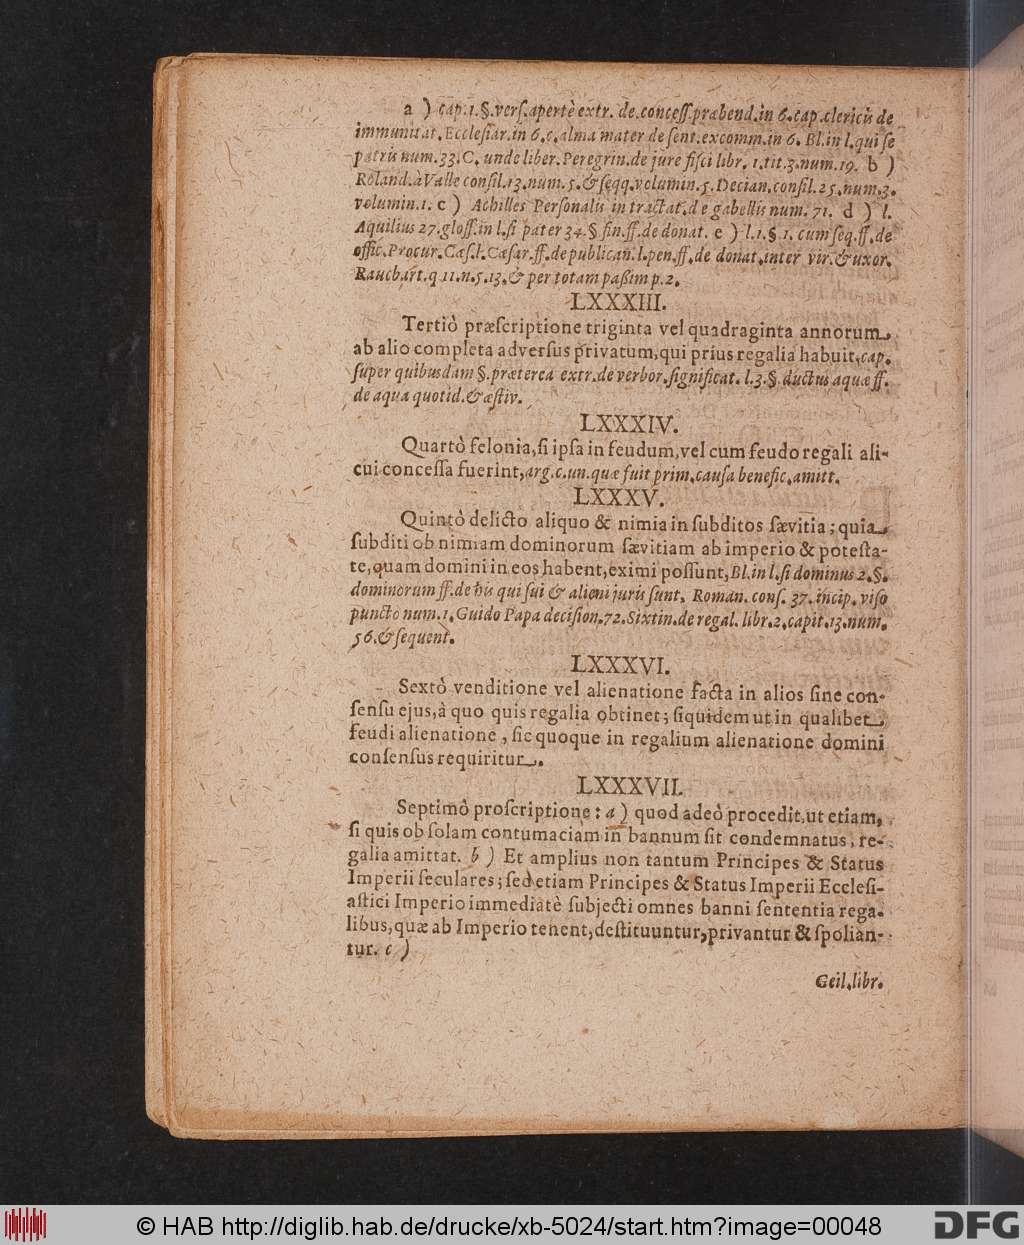 a ) cap. 1. §. verſ. apertè extr. de conceſſ. præbend. in 6. cap. clericũ de
immunitat. Eccleſiar. in 6. c. alma mater de ſent. excomm. in 6. Bl. in l. qui ſe
patris num. 33. C. unde liber. Peregrin. de jure fiſci libr. 1. tit. 3. num. 19. b )
Roland. à Valle conſil. 13. num. 5. & ſeqq. volumin. 5. Decian. conſil. 25. num. 3.
volumin. 1. c ) Achilles Perſonalis in tractat. de gabellis num. 71. d ) l.
Aquilius 27. gloſſ. in l. ſi pater 34. § fin. ff. de donat. e ) l. 1. §. 1. cum ſeq. ff. de
offic. Procur. Cæſ. l. Cæſar. ff. de publican. l. pen. ff. de donat. inter vir. & uxor.
Rauchbart. q. 11. n. 5. 13. & per totam paßim p. 2.
LXXXIII.
Tertiò præſcriptione triginta vel quadraginta annorum,
ab alio completa adverſus privatum, qui prius regalia habuit, cap.
ſuper quibusdam §. præterea extr. de verbor. ſignificat. l. 3. §. ductus aquæ ff.
de aqua quotid. & æſtiv.
LXXXIV.
Quartò felonia, ſi ipſa in feudum, vel cum feudo regali ali-
cui conceſſa fuerint, arg. c. un. quæ fuit prim. cauſa benefic. amitt.
LXXXV.
Quintò delicto aliquo & nimia in ſubditos ſævitia; quia
ſubditi ob nimiam dominorum ſævitiam ab imperio & poteſta-
te, quam domini in eos habent, eximi poſſunt, Bl. in l. ſi dominus 2. §.
dominorum ff. de his qui ſui & alieni juris ſunt. Roman. conſ. 37. incip. viſo
puncto num. 1. Guido Papa deciſion. 72. Sixtin. de regal. libr. 2. capit. 13. num.
56. & ſequent.
LXXXVI.
Sextò venditione vel alienatione facta in alios ſine con-
ſenſu ejus, à quo quis regalia obtinet; ſiquidem ut in qualibet
feudi alienatione, ſic quoque in regalium alienatione domini
conſenſus requiritur.
LXXXVII.
Septimò proſcriptione: a ) quod adeò procedit, ut etiam,
ſi quis ob ſolam contumaciam in bannum ſit condemnatus, re-
galia amittat. b ) Et amplius non tantum Principes & Status
Imperii ſeculares; ſed etiam Principes & Status Imperii Eccleſi-
aſtici Imperio immediatè ſubjecti omnes banni ſententia rega-
libus, quæ ab Imperio tenent, deſtituuntur, privantur & ſpolian-
tur. c )
Geil. libr.
© HAB http://diglib.hab.de/drucke/xb-5024/start.htm?image=00048
DFG